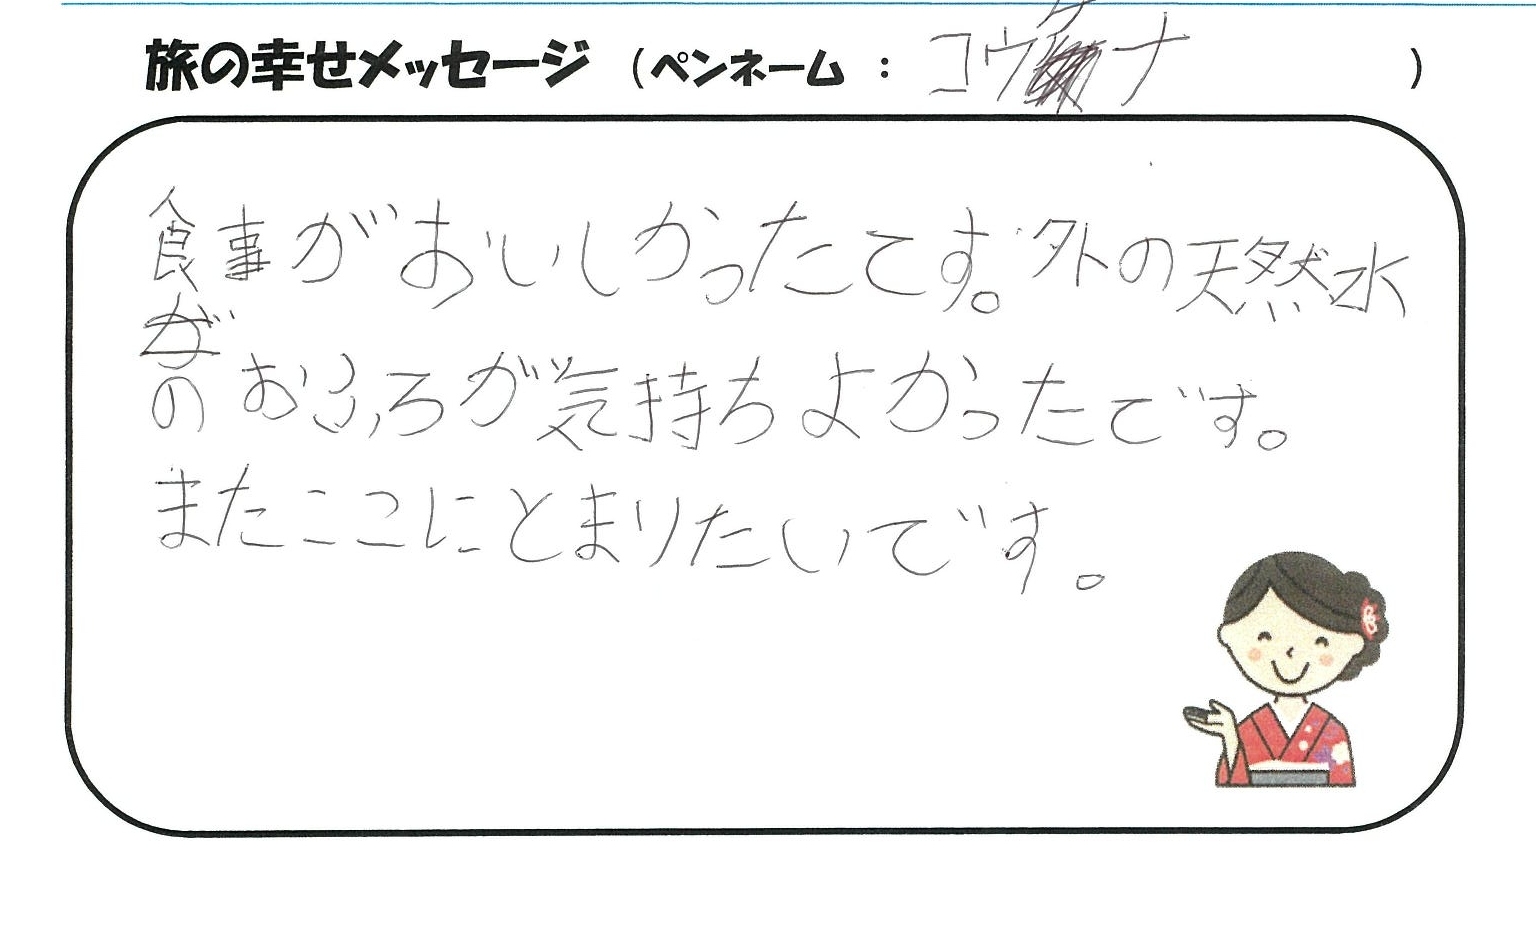 旅の幸せメッセージ (ペンネーム : コウケナ )
食事がおいしかったてす。外の天然水
のおふろが気持ちよかったです。
またここにとまりたいです。